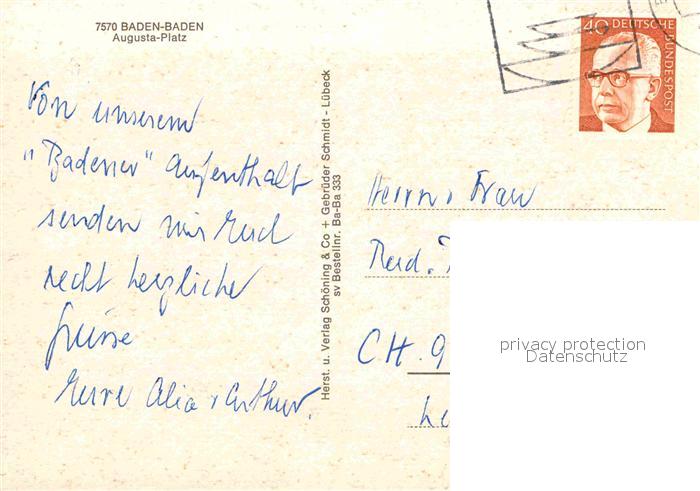 7570 BADEN-BADEN
Augusta-Platz
Von unserem
"Badener" Aufenthalt
senden wir Euch
recht herzliche
Grüsse
Eure Alice + Arthur.
Herst. u. Verlag Schöning & Co + Gebrüder Schmidt - Lübeck
sv Bestellnr. Ba-Ba 333
40 DEUTSCHE
BUNDESPOST
Herrn + Frau
CH. 9
privacy protection
Datenschutz